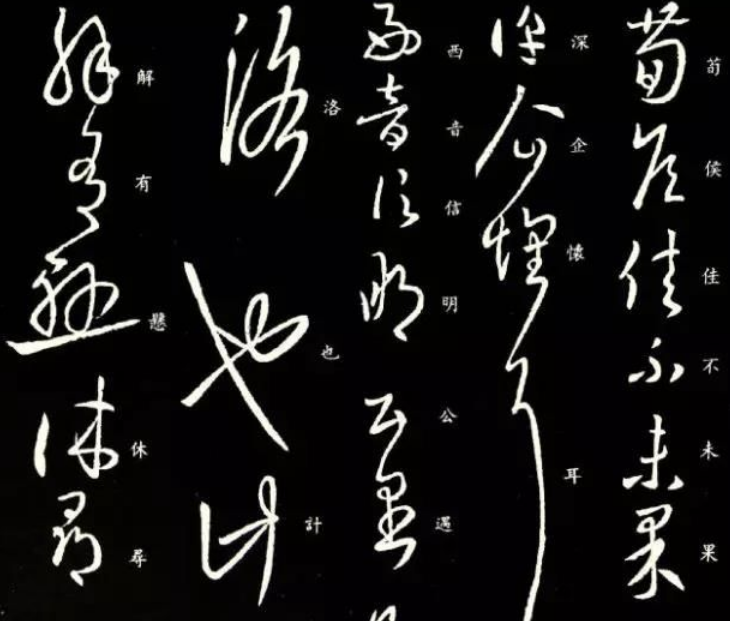 荀侯佳不未果
深企懷耳
西音信明公遇
洛也計
解有懸休尋